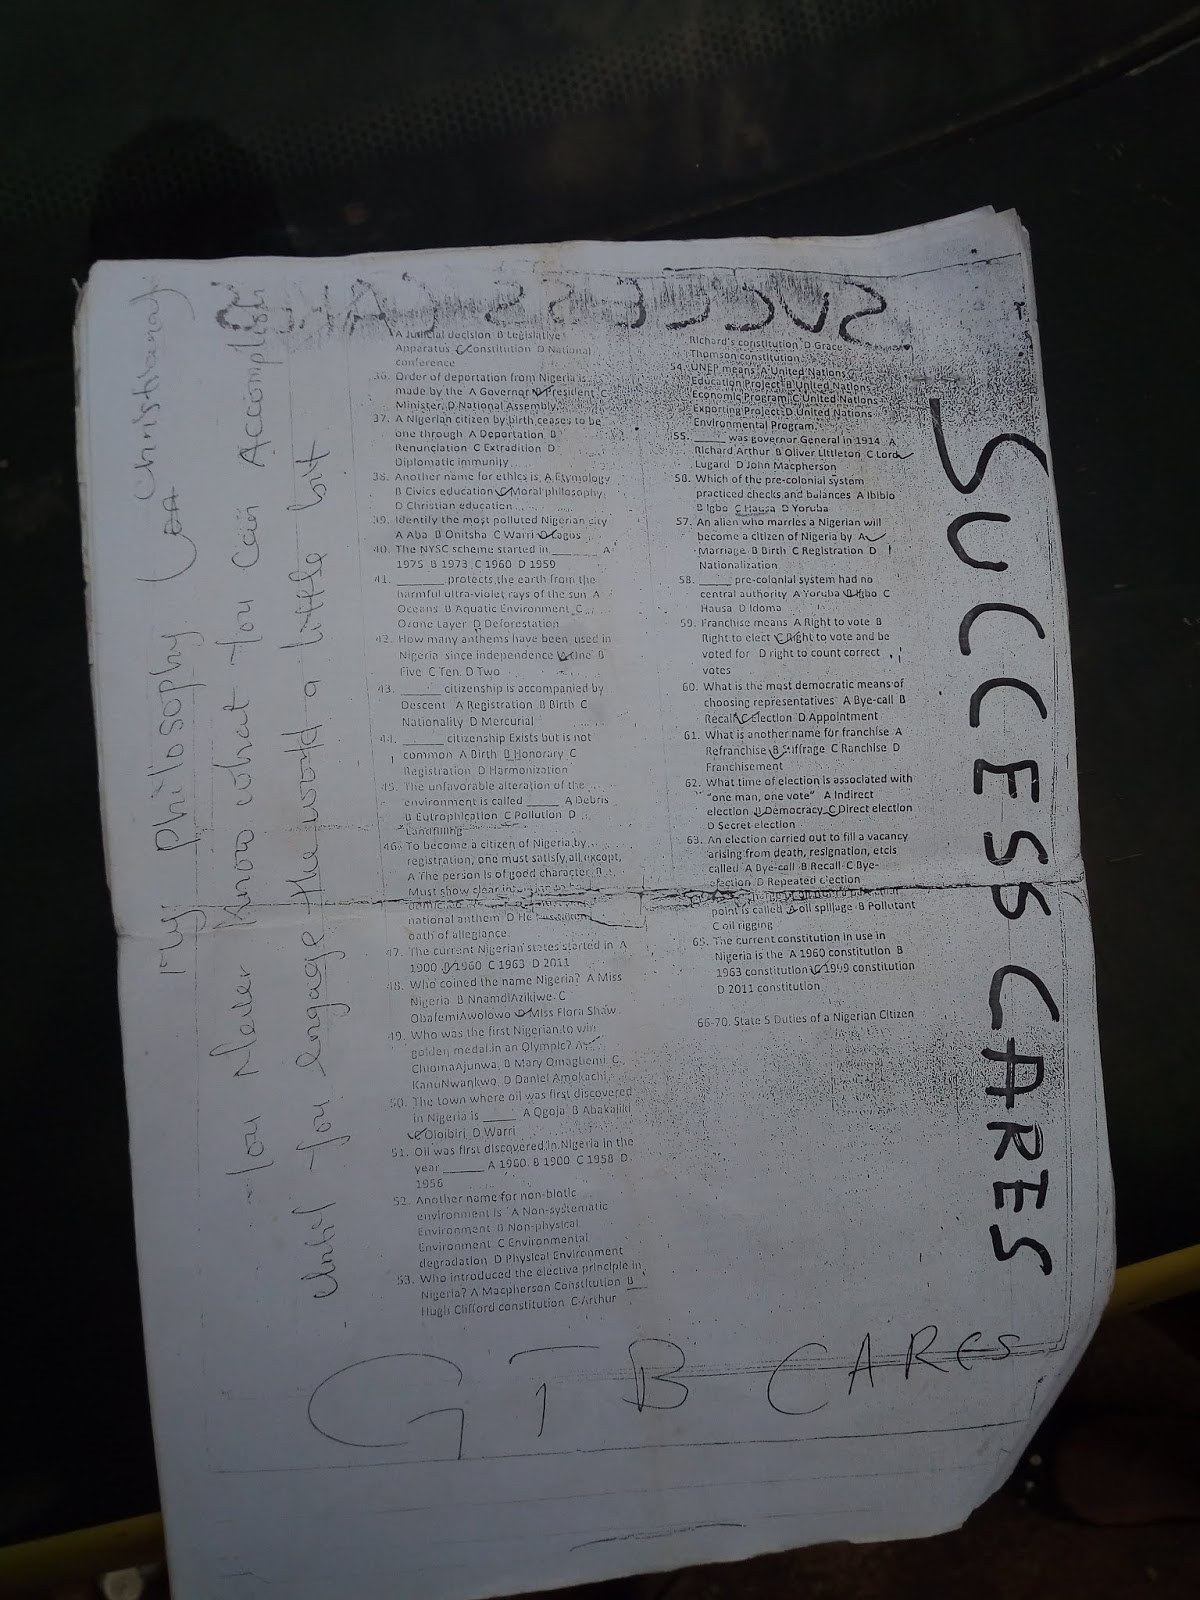 SUCCESS
A Judicial decision B Legislative
Apparatus C Constitution D National
conference
36. Order of deportation from Nigeria is
made by the A Governor B President C
Minister. D National Assembly.
37. A Nigerian citizen by birth ceases to be
one through A Deportation B
Renunciation C Extradition D
Diplomatic immunity
38. Another name for ethics is A Etymology
B Civics education C Moral philosophy
D Christian education
39. Identify the most polluted Nigerian city
A Aba B Onitsha C Warri D Lagos
40. The NYSC scheme started in ______ A
1975 B 1973 C 1960 D 1959
41. ______ protects the earth from the
harmful ultra-violet rays of the sun A
Oceans B Aquatic Environment C
Ozone Layer D Deforestation
42. How many anthems have been used in
Nigeria since independence A One B
Five C Ten D Two
43. ______ citizenship is accompanied by
Descent A Registration B Birth C
Nationality D Mercurial
44. ______ citizenship Exists but is not
common A Birth B Honorary C
Registration D Harmonization
45. The unfavorable alteration of the
environment is called _____ A Debris
B Eutrophication C Pollution D
Landfilling
46. To become a citizen of Nigeria by
registration, one must satisfy all except,
A The person is of good character B
Must show clear
national anthem D He has taken
oath of allegiance
47. The current Nigerian states started in A
1900 B 1960 C 1963 D 2011
48. Who coined the name Nigeria? A Miss
Nigeria B NnamdiAzikiwe C
ObafemiAwolowo D Miss Flora Shaw
49. Who was the first Nigerian to win
golden medal in an Olympic? A
ChiomaAjunwa B Mary Omagbemi C
KanuNwankwo D Daniel Amokachi
50. The town where oil was first discovered
in Nigeria is _____ A Ogoja B Abakaliki
C Oloibiri D Warri
51. Oil was first discovered in Nigeria in the
year ______ A 1960 B 1900 C 1958 D
1956
52. Another name for non-biotic
environment is A Non-systematic
Environment B Non-physical
Environment C Environmental
degradation D Physical Environment
53. Who introduced the elective principle in
Nigeria? A Macpherson Constitution B
Hugh Clifford constitution C Arthur
Richard's constitution D Grace
Thomson constitution
54. UNEP means A United Nations
Education Project B United Nations
Economic Program C United Nations
Exporting Project D United Nations
Environmental Program
55. _____ was governor General in 1914 A
Richard Arthur B Oliver Littleton C Lord
Lugard D John Macpherson
56. Which of the pre-colonial system
practiced checks and balances A Ibibio
B Igbo C Hausa D Yoruba
57. An alien who marries a Nigerian will
become a citizen of Nigeria by A
Marriage B Birth C Registration D
Nationalization
58. _____ pre-colonial system had no
central authority A Yoruba B Igbo C
Hausa D Idoma
59. Franchise means A Right to vote B
Right to elect C Right to vote and be
voted for D right to count correct
votes
60. What is the most democratic means of
choosing representatives A Bye-call B
Recall C Election D Appointment
61. What is another name for franchise A
Refranchise B Suffrage C Ranchise D
Franchisement
62. What time of election is associated with
"one man, one vote" A Indirect
election B Democracy C Direct election
D Secret election
63. An election carried out to fill a vacancy
arising from death, resignation, etcis
called A Bye-call B Recall C Bye-
election D Repeated election
point is called A oil spillage B Pollutant
C oil rigging
65. The current constitution in use in
Nigeria is the A 1960 constitution B
1963 constitution C 1999 constitution
D 2011 constitution
66-70. State 5 Duties of a Nigerian Citizen
SUCCESS CARES
GTB CARES
My Philosophy
You Never Know what you can Accomplish
Until you engage the world a little bit